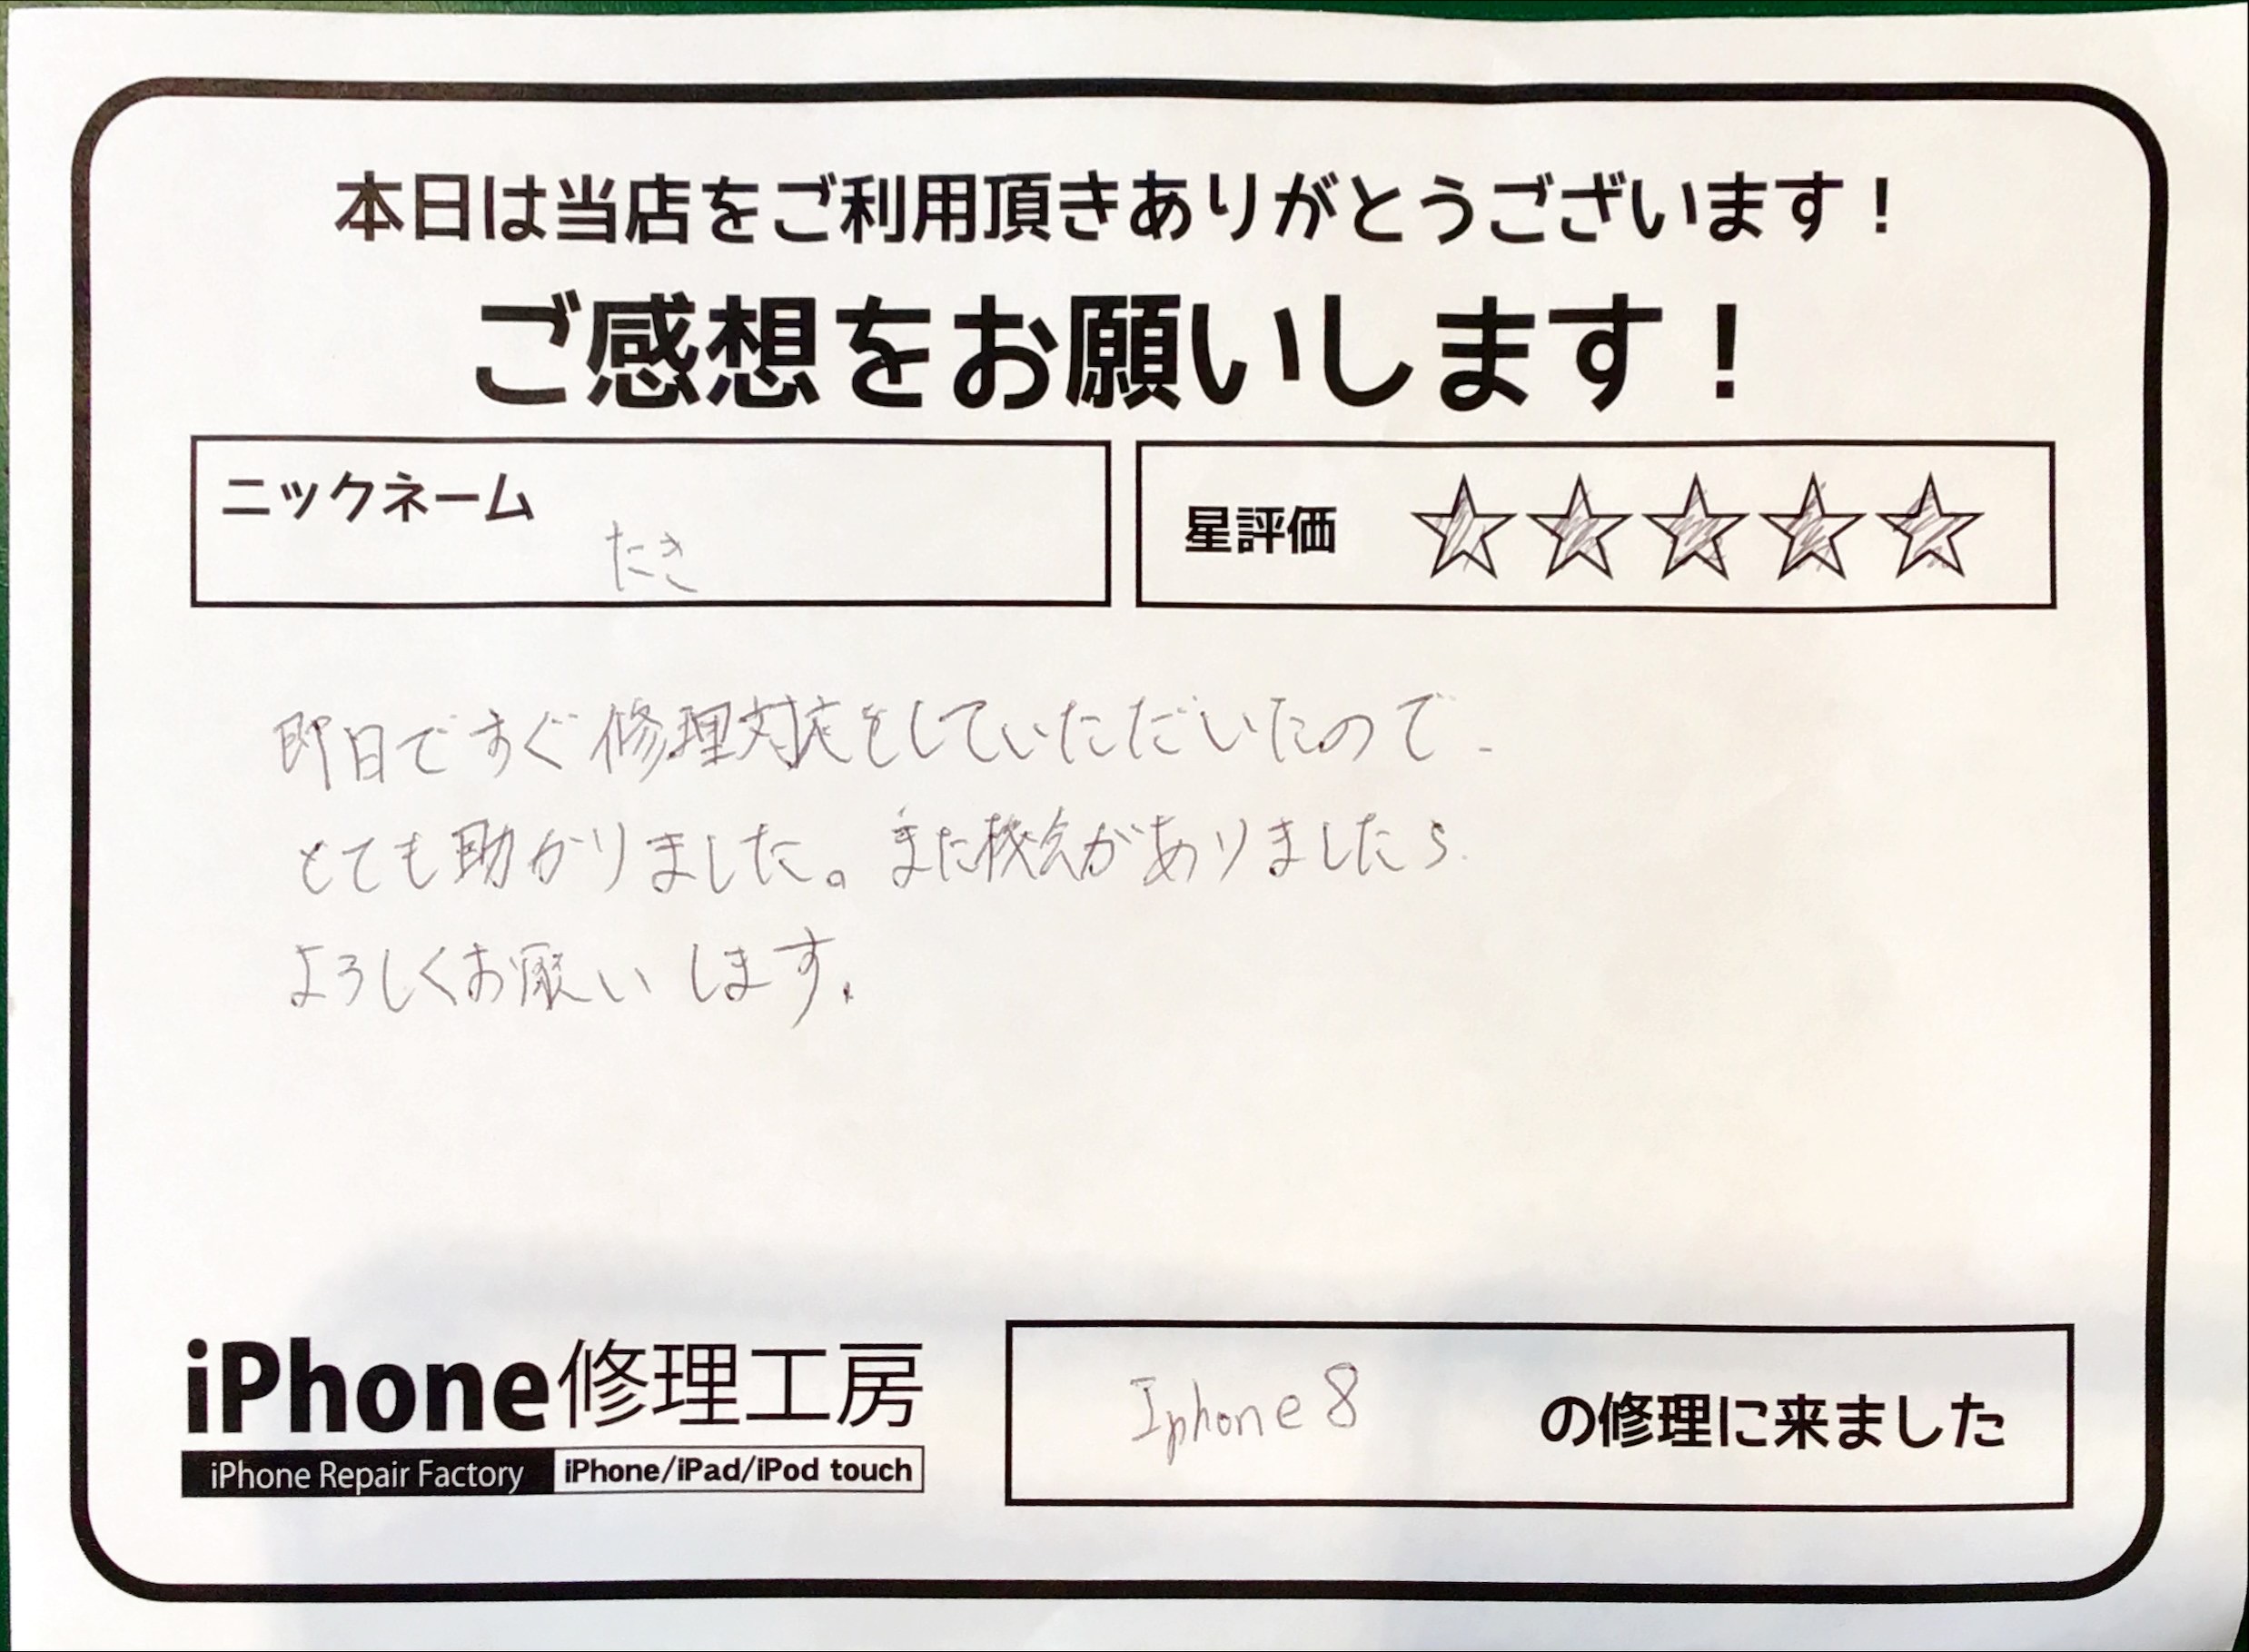 本日は当店をご利用頂きありがとうございます！
ご感想をお願いします！
ニックネーム
たき
星評価 ☆☆☆☆☆
即日ですぐ修理対応をしていただいたので、
とても助かりました。また機会がありましたら
よろしくお願いします.
iPhone修理工房
iPhone Repair Factory iPhone/iPad/iPod touch
Iphone 8 の修理に来ました